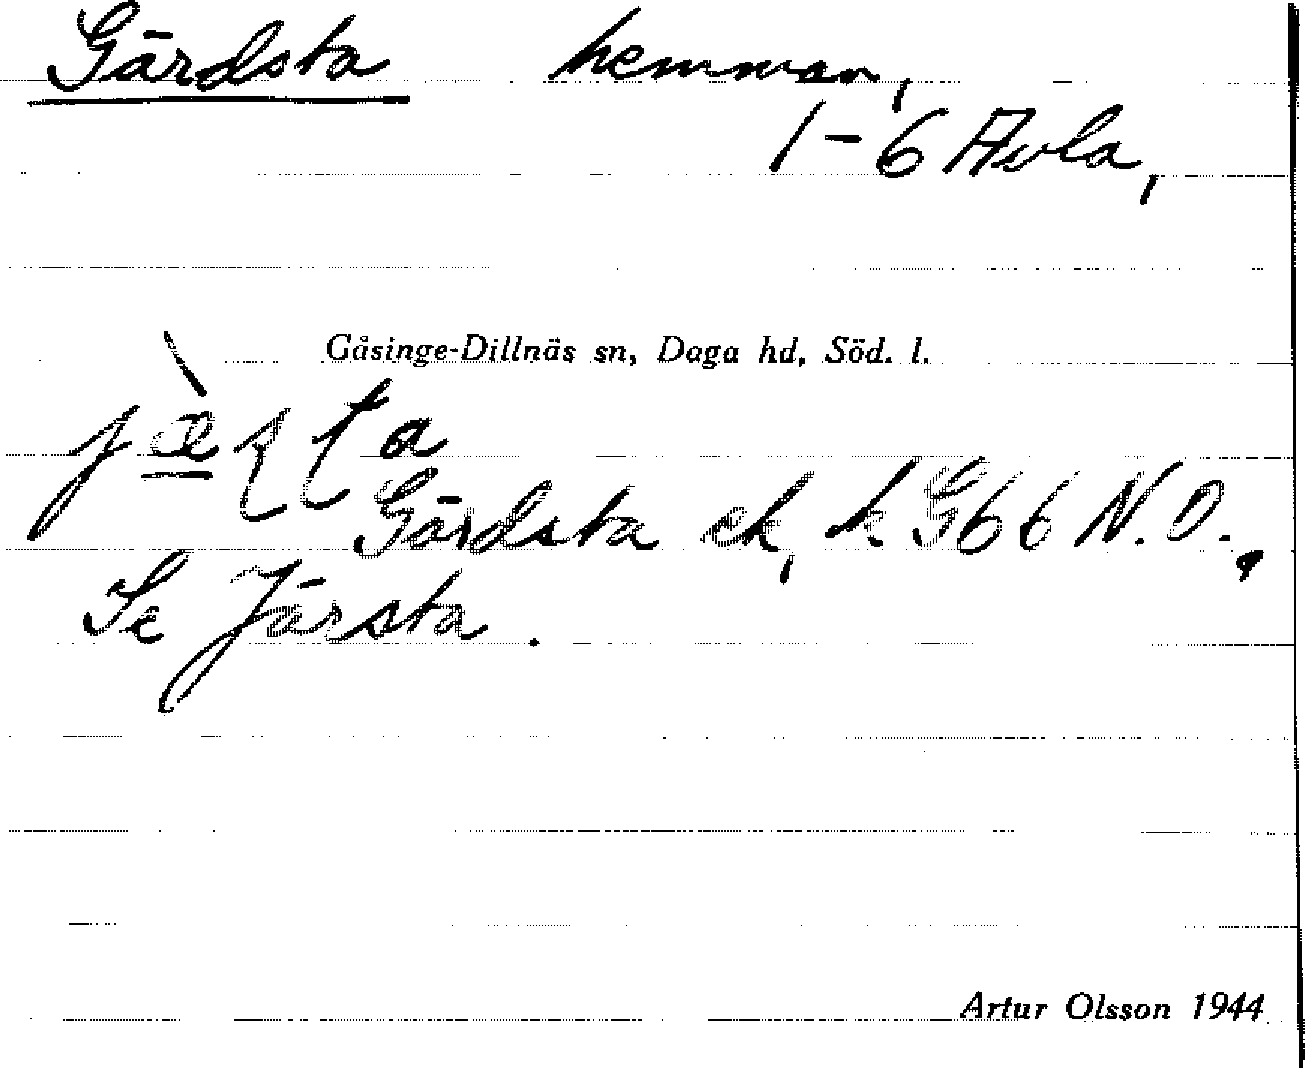 Gärdsta hemman,
1-6 Avla,
Gåsinge-Dillnäs sn, Daga hd, Söd. l.
Gärdsta ek, k G66 N.O.,
Se Järsta.
Artur Olsson 1944